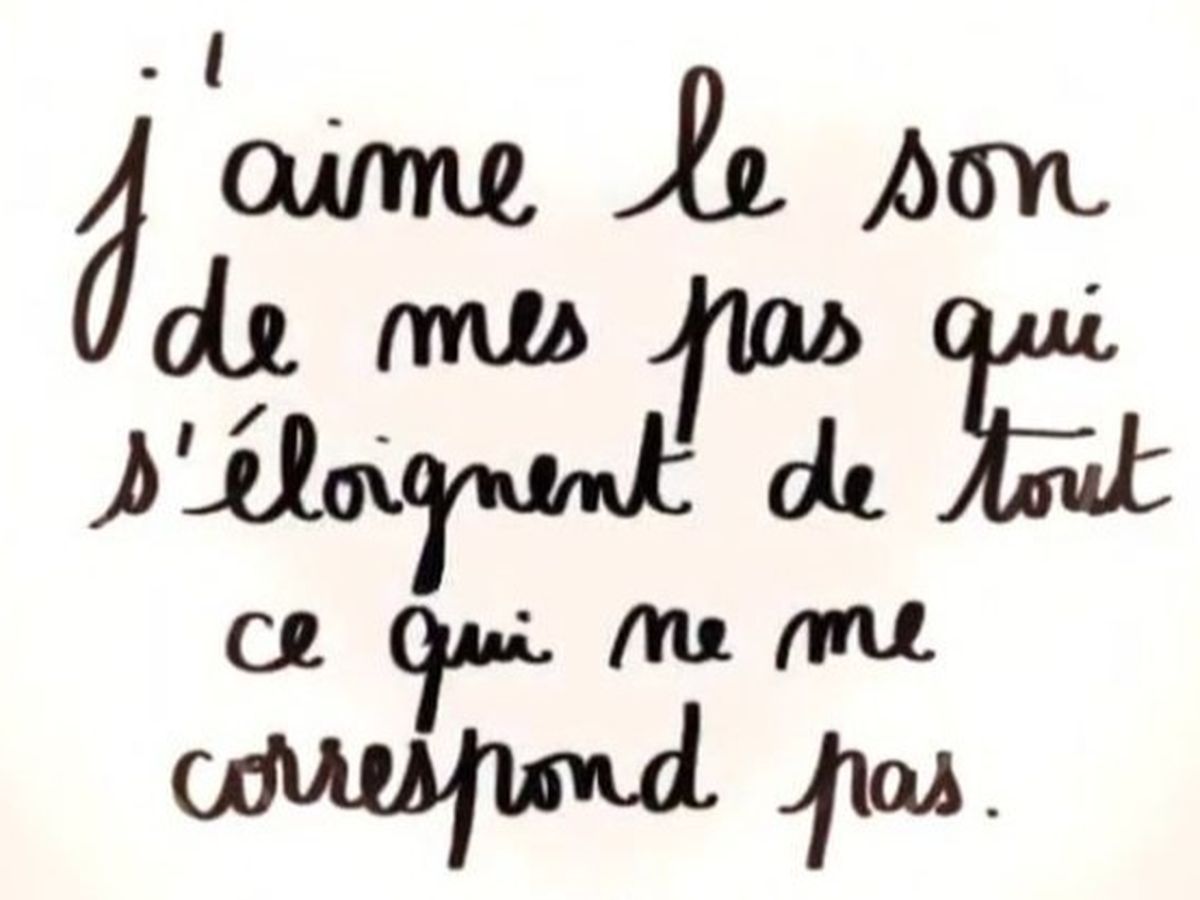 j'aime le son
de mes pas qui
s'éloignent de tout
ce qui ne me
correspond pas.